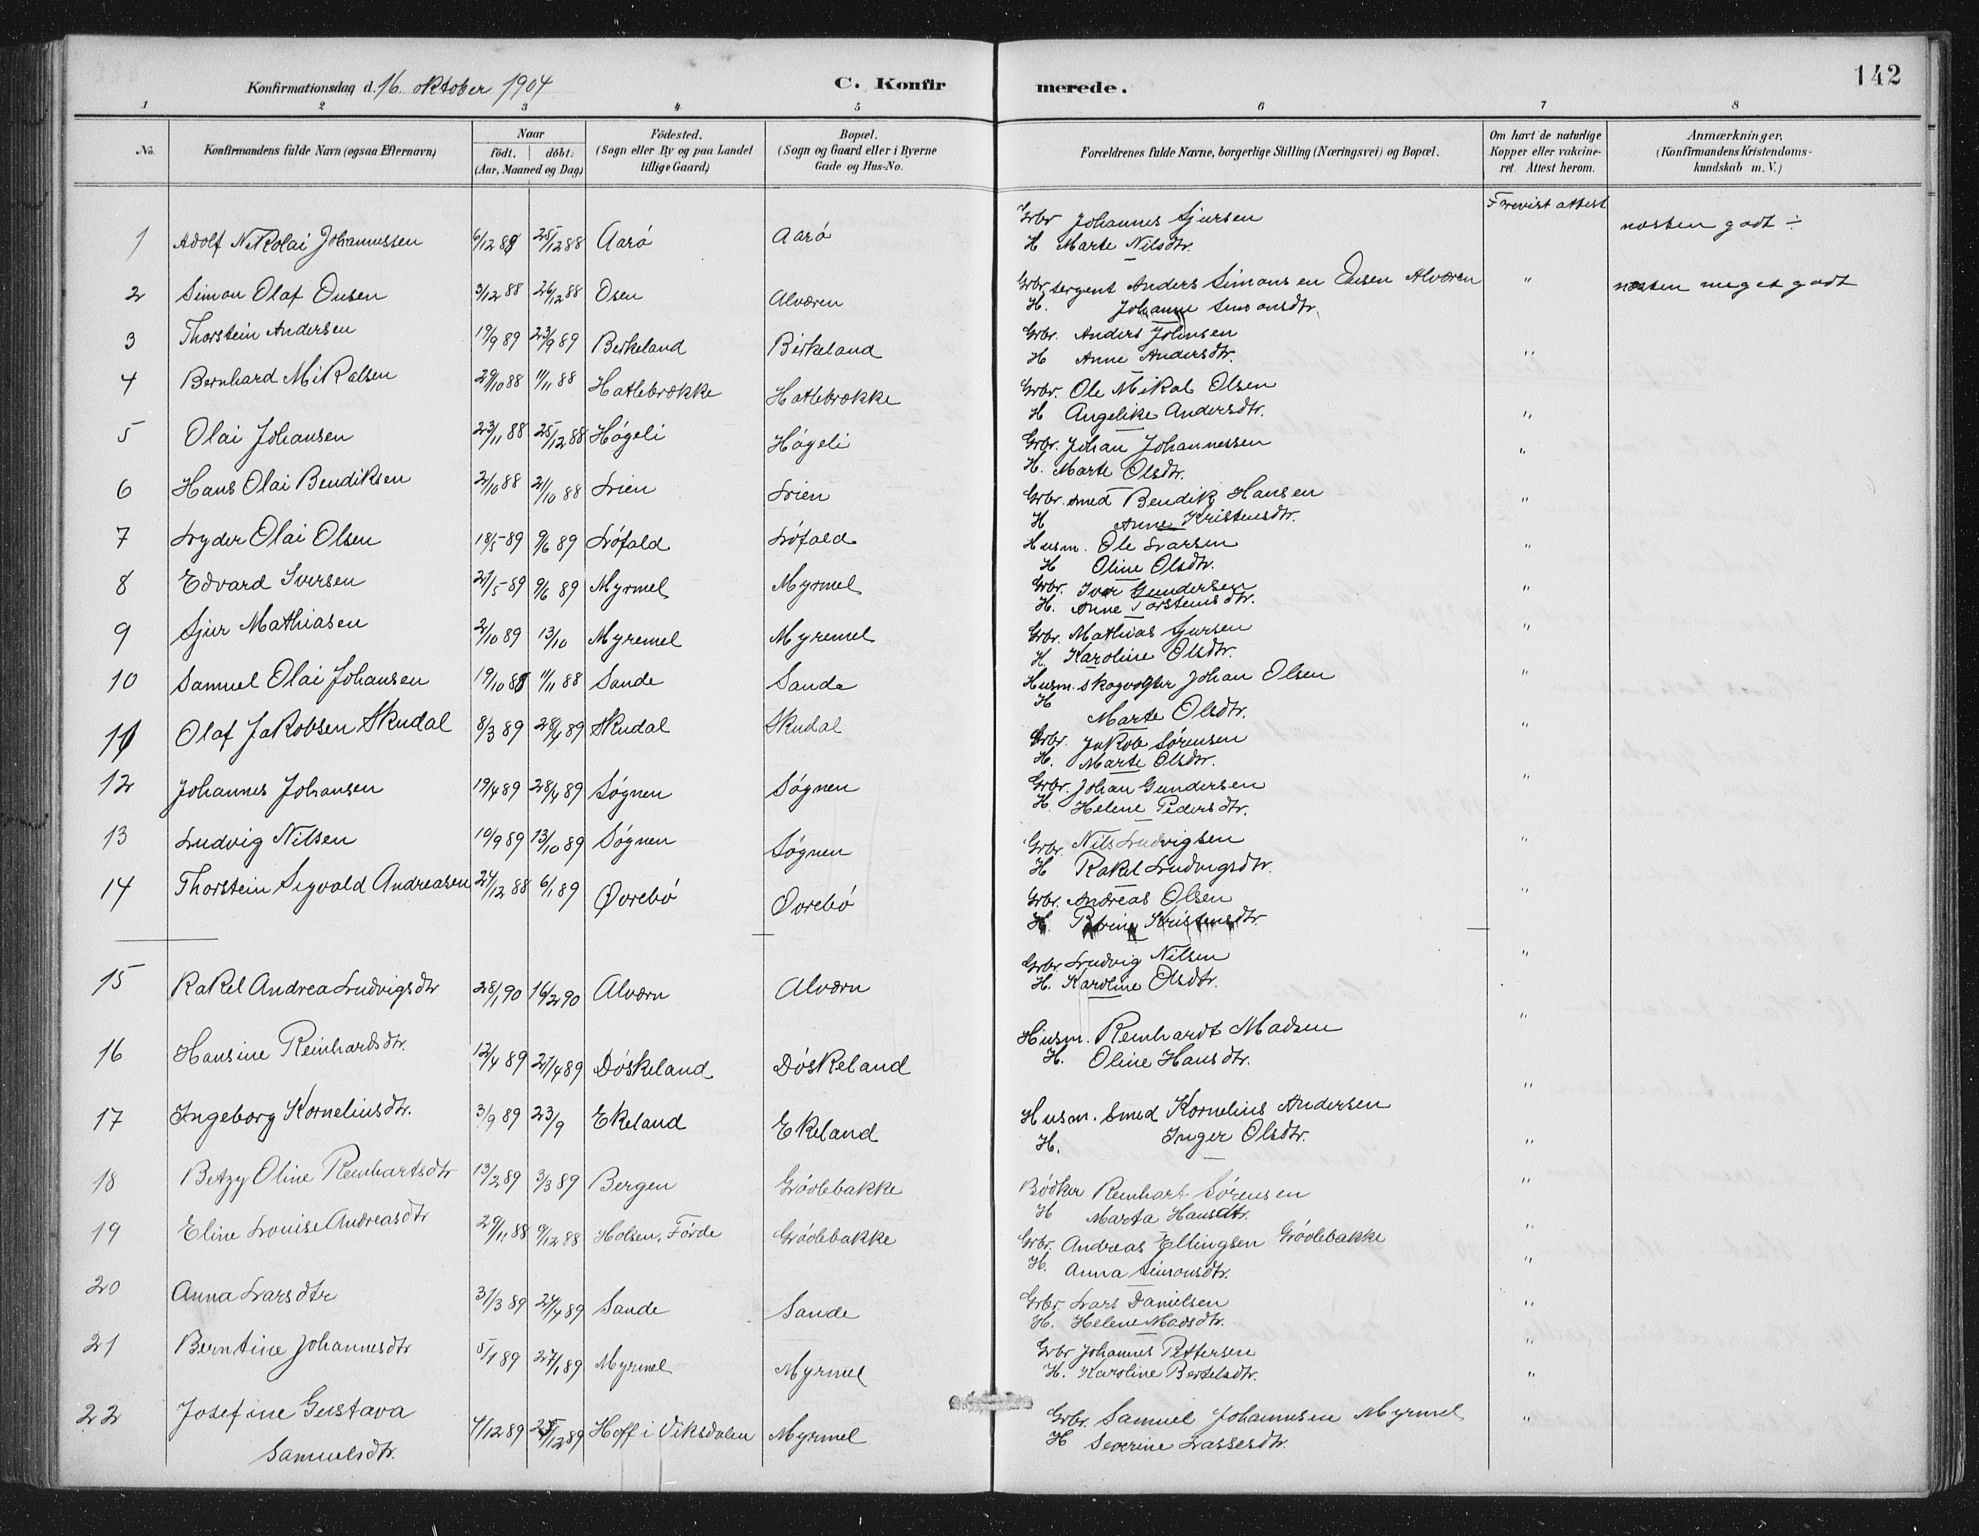 Konfirmationsdag d. 16. oktober 1904 C. Konfir merede. 142
1 2 3 4 5 6 7 8
No. Konfirmandens fulde Navn (ogsaa Efternavn) Naar født. døbt: (Aar, Maaned og Dag) Födested. (Sogn eller By og paa Landet tillige Gaard) Bopæl. (Sogn og Gaard eller i Byerne Gade og Hus-No. Forældrenes fulde Navne, borgerlige Stilling (Næringsvei) og Bopæl. Om havt de naturlige Kopper eller vakcineret. Attest herom. Anmærkninger. (Konfirmandens Kristendomskundskab m. V.)
1 Adolf Nikolai Johannessen 6/12 88 25/12 88 Aarö Aarö Grbr Johannes Sjursen Forevist attest næsten godt ÷
H Marte Nilsdtr.
2 Simon Olaf Ousen 3/12 88 26/12 88 Osen Alværen Grbr. sergent Anders Simonsen Ousen Alværen " næsten meget godt
H. Johanne Simonsdtr.
3 Thorstein Andersen 19/9 89 23/9 89 Birkeland Birkeland Grbr. Anders Johnsen
H Anne Andersdtr. "
4 Bernhard Mikalsen 29/10 88 11/11 88 Hatlebrække Hatlebrække Grbr. Ole Mikal Olsen
H Angelike Andersdtr. "
5 Olai Johansen 23/11 88 25/12 88 Högeli Högeli Grbr. Johan Johannessen "
H. Marte Olsdtr.
6 Hans Olai Bendiksen 2/10 88 21/10 88 Lien Lien Grbr. smed Bendik Hansen "
H Anne Kristensdtr.
7 Lyder Olai Olsen 18/5 89 9/6 89 Löfald Löfald Husm. Ole Larsen "
H Oline Olsdtr.
8 Edvard Iversen 21/5 89 9/6 89 Myrmel Myrmel Grbr. Iver Gundersen "
H. Anne Torstensdtr.
9 Sjur Mathiasen 2/10 89 13/10 Myremel Myremel Grbr. Mathias Sjursen "
H. Karoline Olsdtr.
10 Samuel Olai Johansen 19/10 88 11/11 88 Sande Sande Husm. skogvogter Johan Olsen "
H Marte Olsdtr.
11 Olaf Jakobsen Skudal 8/3 89 28/4 89 Skudal Skudal Grbr. Jakob Sörensen "
H. Marte Olsdtr.
12 Johannes Johansen 19/4 89 28/4 89 Sögnen Sögnen Grbr. Johan Gundersen "
H Helene Pedersdtr.
13 Ludvig Nilsen 19/9 89 13/10 89 Sögnen Sögnen Grbr. Nils Ludvigsen "
H Rakel Ludvigsdtr.
14 Thorstein Sigvald Andreasen 24/12 88 6/1 89 Øvrebö Øvrebö Grbr. Andreas Olsen "
H. Petrine Kristensdtr
15 Rakel Andrea Ludvigsdtr 28/1 90 16/2 90 Alværn Alværn Grbr. Ludvig Nilsen "
H. Karoline Olsdtr.
16 Hansine Reinhardsdtr. 12/4 89 21/4 89 Döskeland Döskeland Husm. Reinhardt Madsen "
H. Oline Hansdtr.
17 Ingeborg Korneliusdtr. 3/9 89 23/9 Ekeland Ekeland Husm. Smed Kornelius Andersen "
H. Inger Olsdtr. "
18 Betzy Oline Reinhartsdtr 13/2 89 3/3 89 Bergen Grövlebakke Bödker Reinhart Sörensen "
H Marta Hansdtr.
19 Eline Louise Andreasdtr 29/11 88 9/12 88 Holsen, Förde Grövlebakke Grbr. Andreas Ellingsen Grövlebakke "
H. Anna Simonsdtr. "
20 Anna Larsdtr 31/3 89 24/4 89 Sande Sande Grbr. Lars Danielsen "
H. Helene Madsdtr.
21 Berntine Johannesdtr 5/1 89 27/1 89 Myrmel Myrmel Grbr Johannes Pettersen "
H. Karoline Bertelsdtr. "
22 Josefine Gustava 4/12 89 25/12 89 Hoff i Viksdalen Myrmel Grbr. Samuel Johannesen Myrmel "
Samuelsdtr. H Severine Lassesdtr.